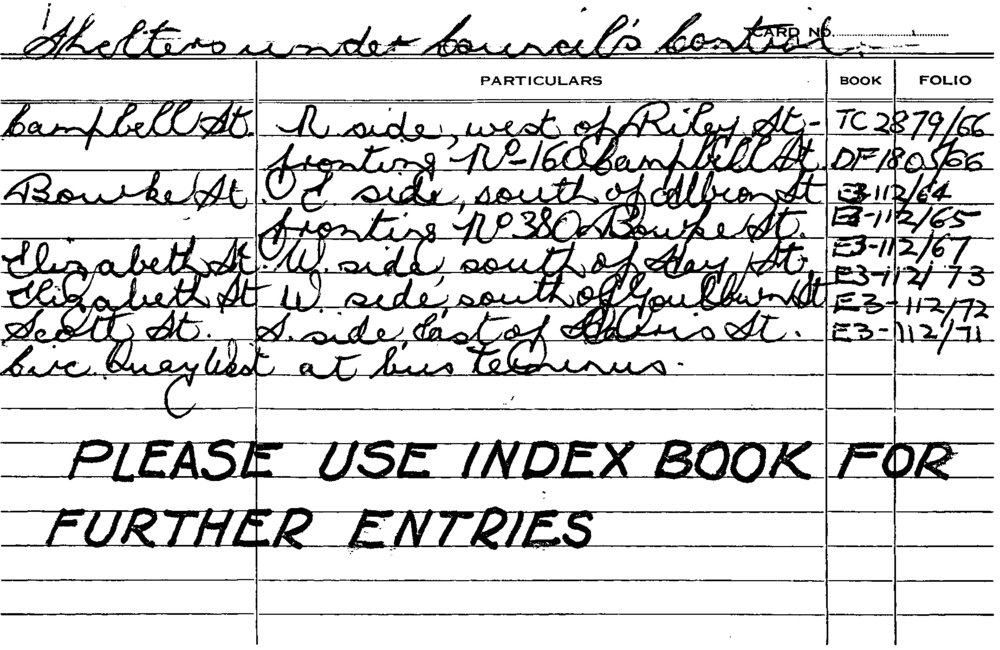 Shelters under Council's Control.
CARD No.
PARTICULARS BOOK FOLIO
Campbell St. N side, west of Riley St- TC 2879/66
fronting No 160 Campbell St DF1805/66
Bourke St E side, south of Albion St E3-112/64
fronting No 380 Bourke St. E3-112/65
Elizabeth St. W. side, south of Hay St. E3-112/67
E3-112/73
Elizabeth St W side, south of Goulburn St E3-112/72
Scott St. S. side, East of Harris St. E3-112/71
Circ. Quay West at bus terminus.
PLEASE USE INDEX BOOK FOR
FURTHER ENTRIES